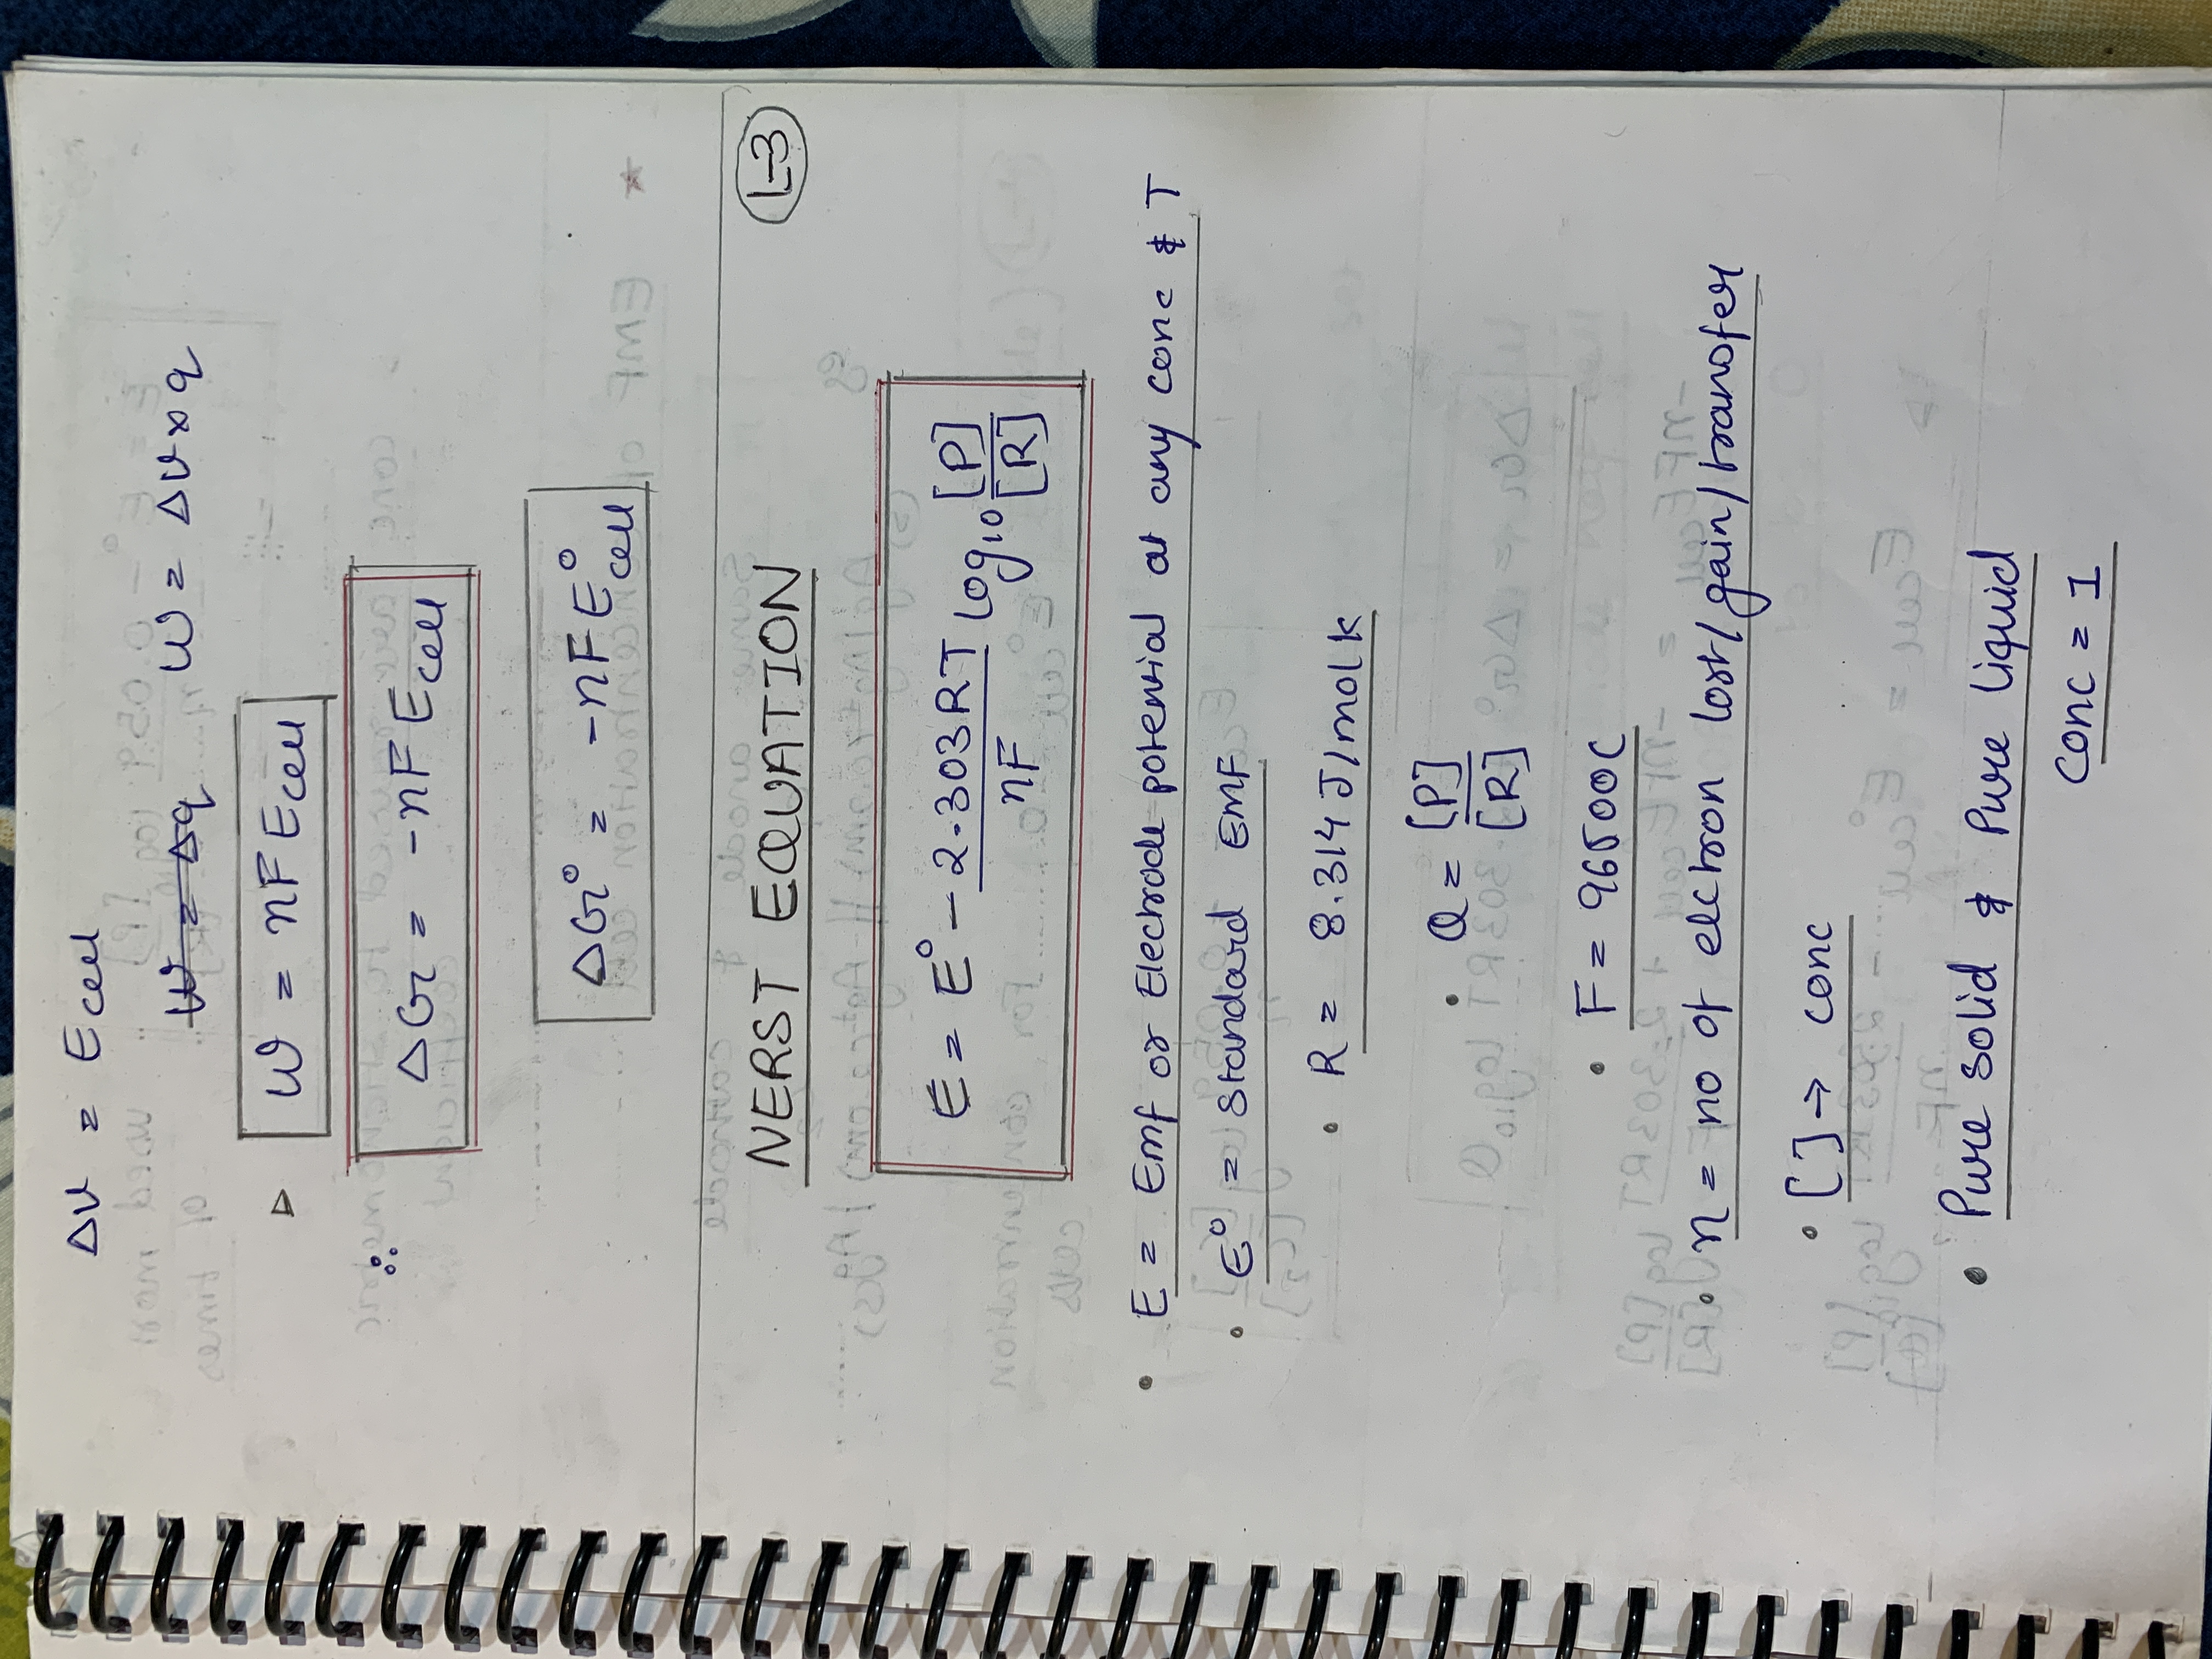 ΔV = Ecell
W = Δq W = ΔV×q
▷ W = nFEcell
∴ ΔG = -nFEcell
ΔG° = -nFE°cell
NERST EQUATION L-3
E = E° - 2.303RT/nF log₁₀ [P]/[R]
• E = Emf or Electrode potential at any conc & T
• E° = Standard EMF
• R = 8.314 J/mol K
• Q = [P]/[R]
• F = 96500C
• n = no of elctron lost/gain/transfer
• [ ] → conc
• Pure solid & Pure liquid
conc = 1